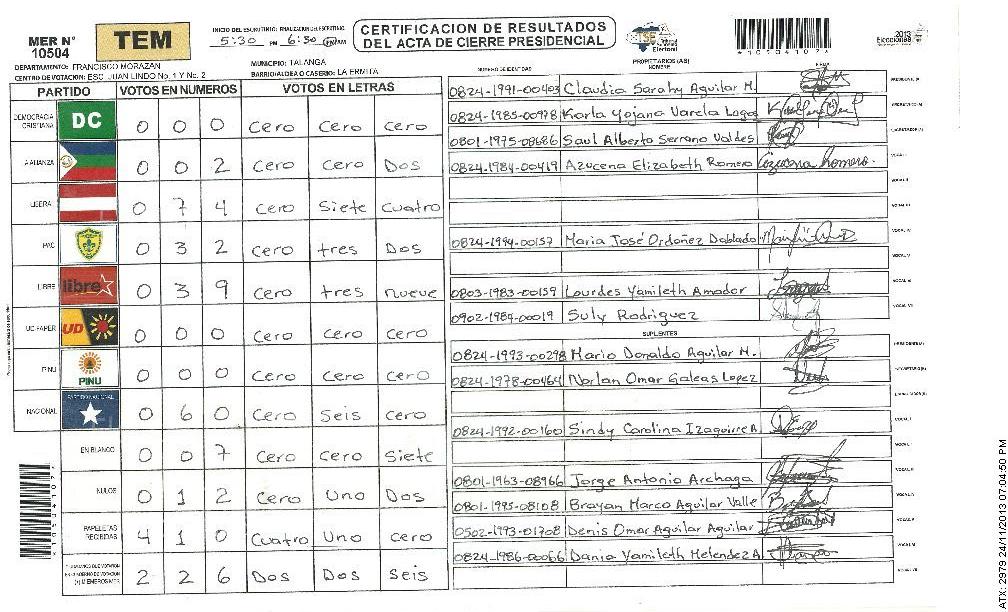 MER N° 10504
TEM
INICIO DEL ESCRUTINIO: FINALIZACION DEL ESCRUTINIO
5:30 PM 6:50 PM/AM
CERTIFICACION DE RESULTADOS
DEL ACTA DE CIERRE PRESIDENCIAL
TSE
*10504102*
2013
Elecciones
DEPARTAMENTO: FRANCISCO MORAZAN
MUNICIPIO: TALANGA
CENTRO DE VOTACION: ESC. JUAN LINDO No. 1 Y No. 2
BARRIO/ALDEA O CASERIO: LA ERMITA
PARTIDO VOTOS EN NUMEROS VOTOS EN LETRAS
DEMOCRACIA CRISTIANA DC 0 0 0 Cero Cero Cero
ALIANZA 0 0 2 Cero Cero Dos
LIBERAL 0 7 4 Cero Siete Cuatro
PAC 0 3 2 Cero tres Dos
LIBRE libre 0 3 9 Cero tres nueve
UD-FAPER UD 0 0 0 Cero Cero Cero
PINU PINU 0 0 0 Cero Cero Cero
NACIONAL PARTIDO NACIONAL 0 6 0 Cero Seis Cero
EN BLANCO 0 0 7 Cero Cero Siete
NULOS 0 1 2 Cero Uno Dos
PAPELETAS RECIBIDAS 4 1 0 Cuatro Uno Cero
2 2 6 Dos Dos Seis
NUMERO DE IDENTIDAD PROPIETARIOS (AS) NOMBRE FIRMA
0824-1991-00403 Claudia Sarahy Aguilar M.
0824-1985-00978 Karla Yojana Varela Lagos
0801-1975-08686 Saul Alberto Serrano Valdes
0824-1984-00419 Azucena Elizabeth Romero Azucena Romero.
0824-1994-00157 Maria José Ordoñez Doblado
0803-1983-00159 Lourdes Yamileth Amador
0902-1984-00019 Suly Rodriguez
SUPLENTES
0824-1993-00298 Mario Donaldo Aguilar M.
0824-1978-00464 Norlan Omar Galeas Lopez
0824-1992-00160 Sindy Carolina Izaguirre A
0801-1963-08966 Jorge Antonio Archaga
0801-1995-08108 Brayan Marco Aguilar Valle
0502-1993-01708 Denis Omar Aguilar Aguilar
0824-1986-00066 Dania Yamileth Melendez A
*10504102*
ATX: 2979 24/11/2013 07:04:50 PM